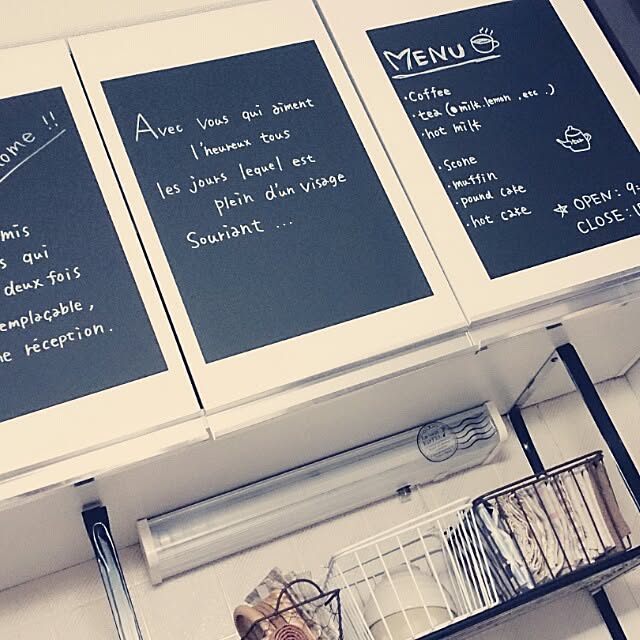 ome !!
mis
s qui
deux fois
emplaçable,
ne réception.
Avec vous qui aiment
l'heureux tous
les jours lequel est
plein d'un visage
Souriant ...
MENU
・Coffee
・tea (milk.lemon .etc .)
・hot milk
・Scone
・muffin
・pound cake
・hot cake
tea
☆ OPEN: 9
CLOSE:1